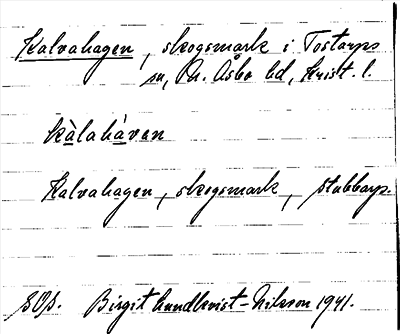 Kalvahagen, skogsmark i Tostarps
sn, N. Åsbo hd, Krist. l.
kàlahàven
Kalvahagen, skogsmark, Stubbarp.
SOS. Birgit Lundkvist-Nilsson 1941.